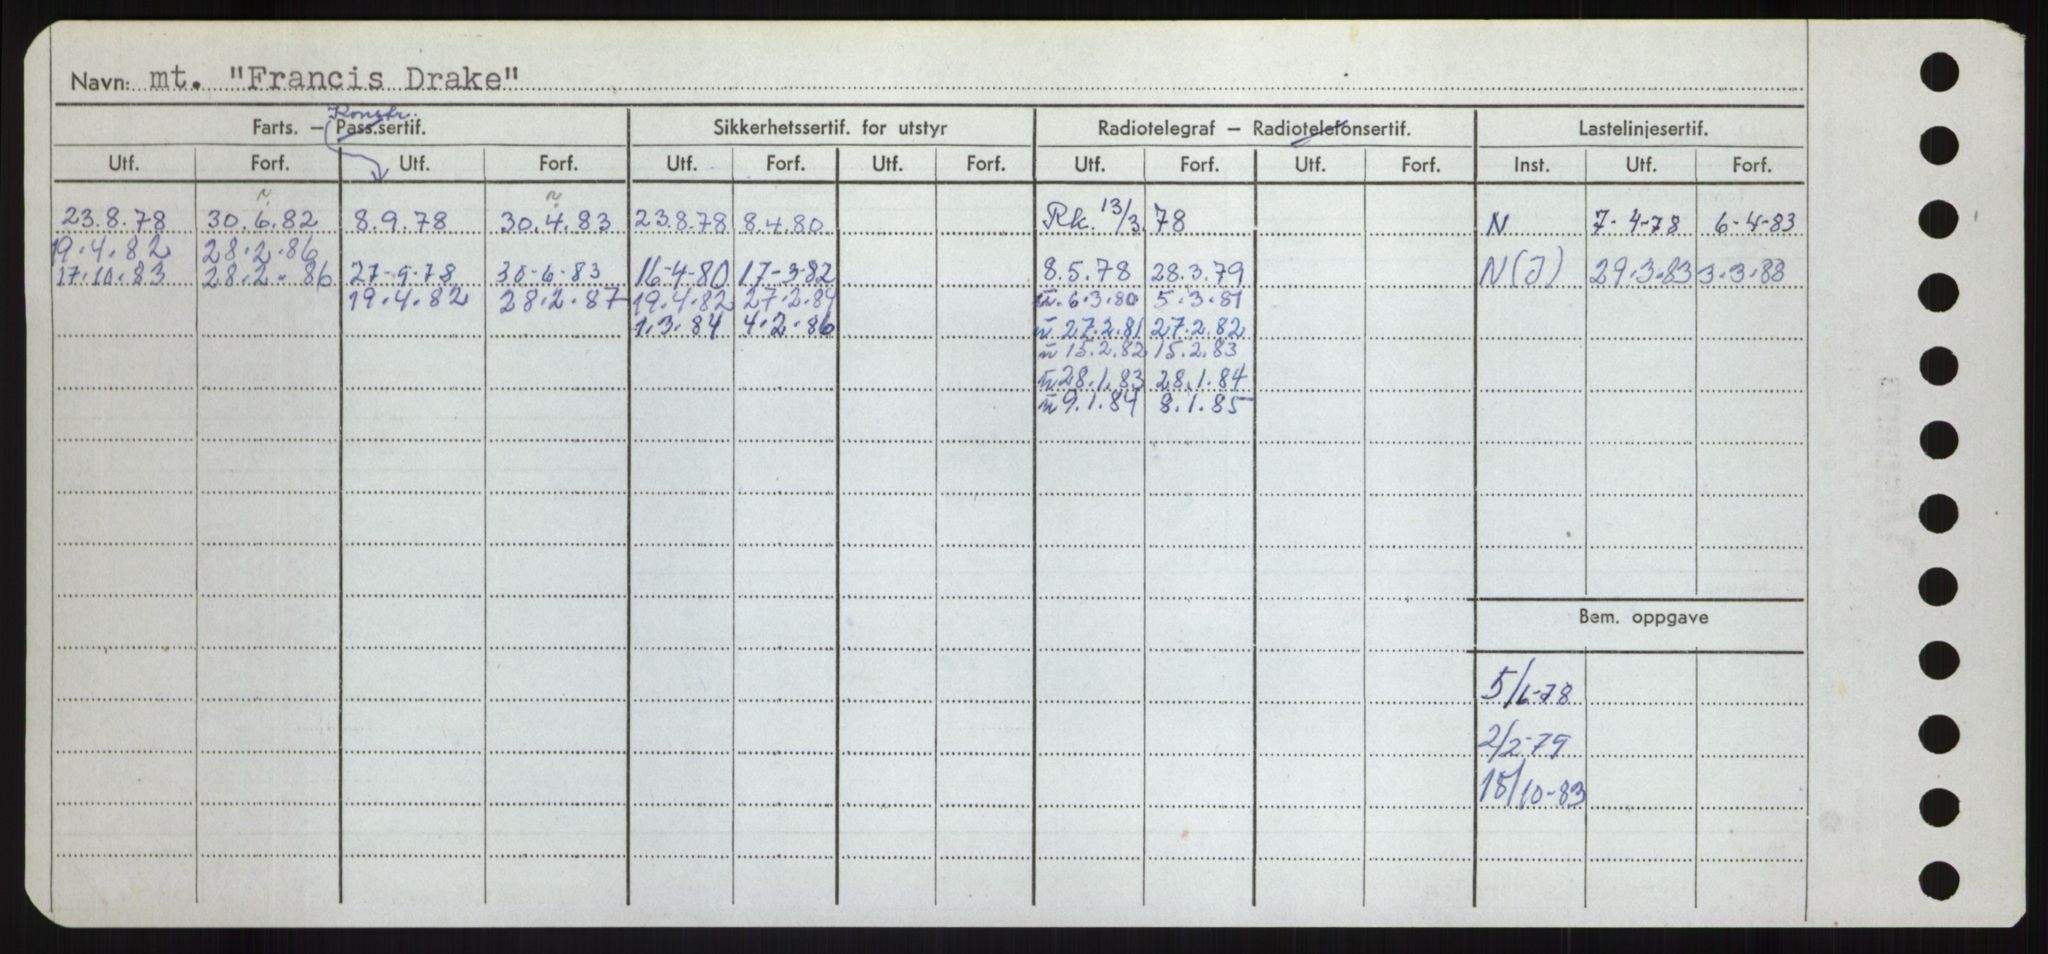 Navn: mt. "Francis Drake"
Konstr.
Farts. – Pass.sertif. Sikkerhetssertif. for utstyr Radiotelegraf – Radiotelefonsertif. Lastelinjesertif.
Utf. Forf. Utf. Forf. Utf. Forf. Utf. Forf. Utf. Forf. Utf. Forf. Inst. Utf. Forf.
23.8.78 30.6.82 8.9.78 30.4.83 23.8.78 8.4.80 Rk. 13/3 78 N 7-4-78 6-4-83
19.4.82 28.2.86
17.10.83 28.2.86 27-9-78 30-6-83 16-4-80 17-3-82 8.5.78 28.3.79 N(J) 29.3.83 3.3.88
19.4.82 28.2.87 19.4.82 27.2.84 6.3.80 5.3.81
1.3.84 4.2.86 27.2.81 27.2.82
15.2.82 15.2.83
28.1.83 28.1.84
9.1.84 8.1.85
Bem. oppgave
5/6-78
2/2-79
18/10-83